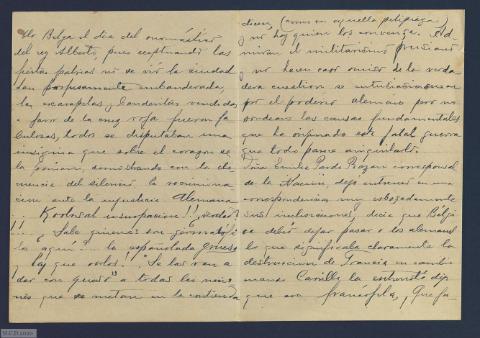 Belga el dia del onomástico
del rey Alberto, pues exceptuando las
fiestas patrias no se vió la ciudad
tan profusamente embanderada,
las escarapelas y banderitas vendidas
a favor de la cruz roja fueron fa
bulosas, todos se disputaban una
insignia que sobre el corazon se
la ponian, demostrando con la cle
mencia del silencio, la
ante la injusticia Alemana
!! ¿verdad?
¡¡ Sale
la aquí la españolada
hay que verlos. Se las van a
dar con queso" a todas las nacio
nes que se metan en la contienda
dicen (como en aquella
y no hay quien los convenza. Ad
miran el militarismo prusiano
y no hacen caso omiso de la verda
dera cuestion se
por el poderio aleman pero no
sondean las causas fundamentales
que ha originado esta fatal guerra
que todo parece aniquilarlo.
Doña Emilia Pardo Bazan corresponsal
de la Nacion, dejó entrever en una
correspondencia muy
sus inclinaciones, decia que Bélgi
se debió dejar pasar a los alemanes
lo que significaba claramente la
destruccion de Francia en cambio
mando Carrillo la entrevistó dijo
que era francófila,
M.C.Franco